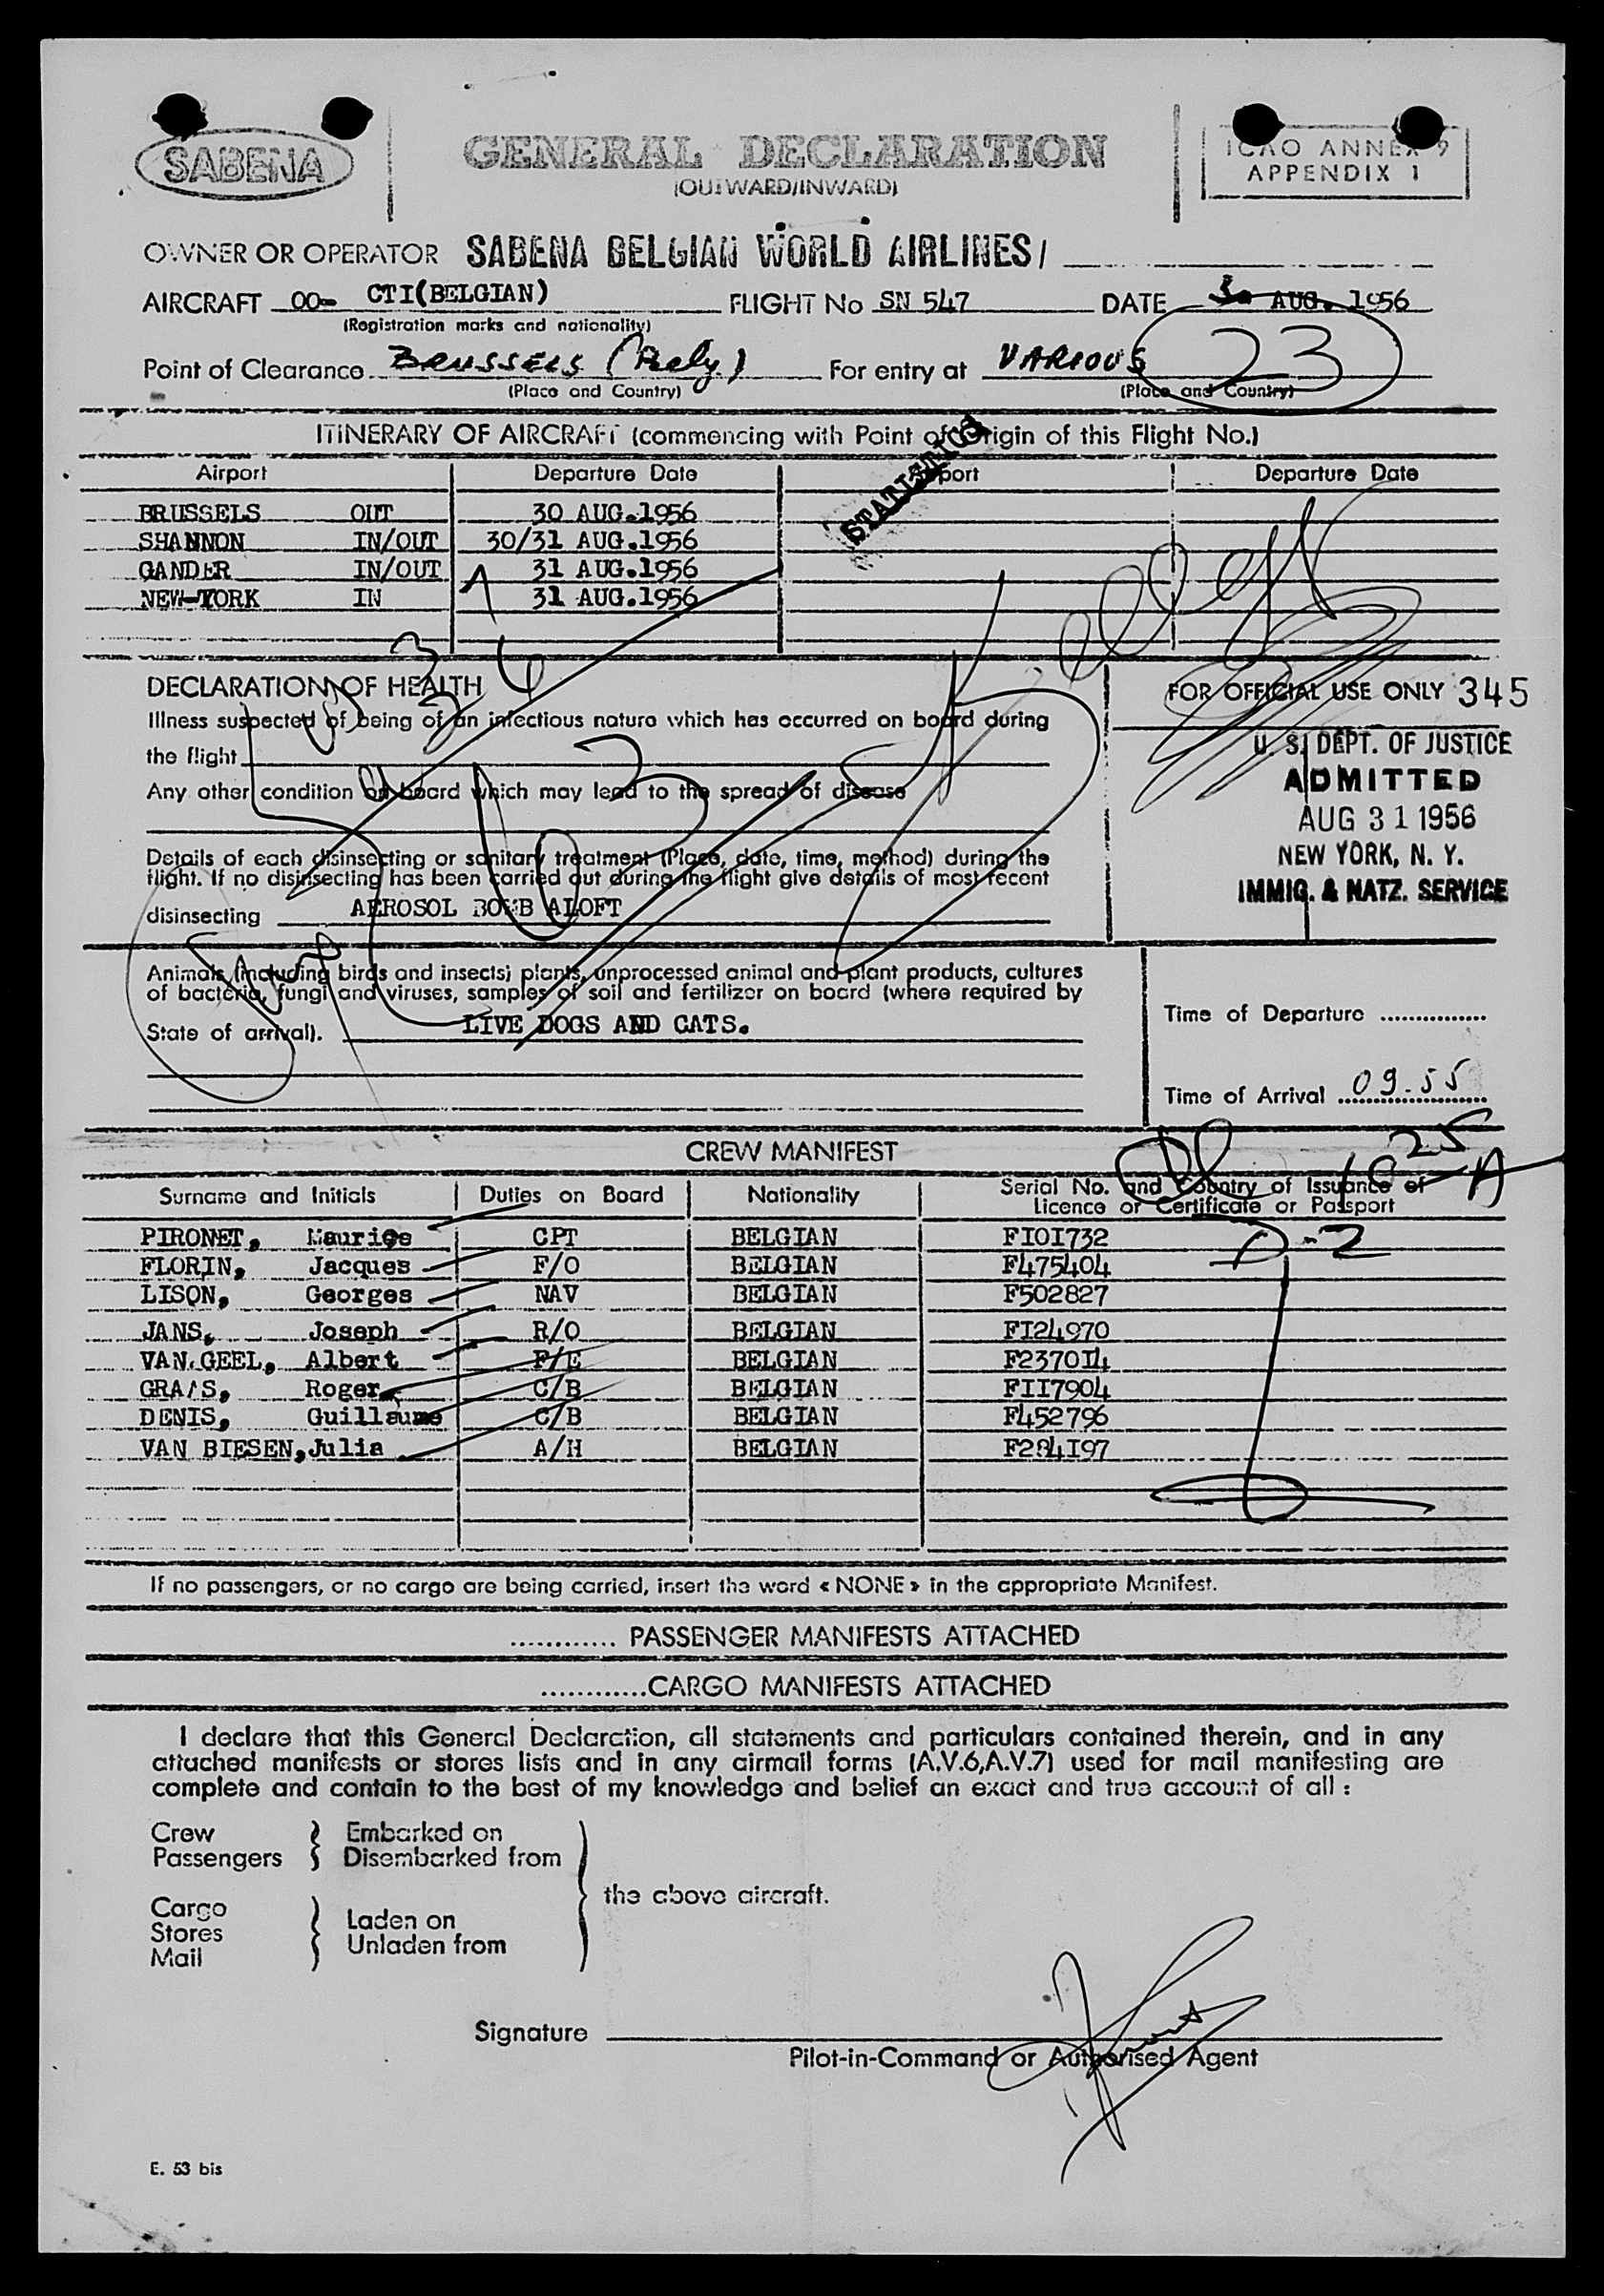 SABENA
GENERAL DECLARATION
(OUTWARD/INWARD)
ICAO ANNEX 9
APPENDIX 1
OWNER OR OPERATOR SABENA BELGIAN WORLD AIRLINES/
AIRCRAFT OO- CTI(BELGIAN) FLIGHT No SN 547 DATE 30 AUG. 1956
(Registration marks and nationality)
Point of Clearance BRUSSELS (Belg.) For entry at VARIOUS 23
(Place and Country) (Place and Country)
ITINERARY OF AIRCRAFT (commencing with Point of Origin of this Flight No.)
Airport Departure Date Airport Departure Date
STATISTICS
BRUSSELS OUT 30 AUG.1956
SHANNON IN/OUT 30/31 AUG.1956
GANDER IN/OUT 31 AUG.1956
NEW-YORK IN 31 AUG.1956
DECLARATION OF HEALTH
Illness suspected of being of an infectious nature which has occurred on board during
the flight
Any other condition on board which may lead to the spread of disease
Details of each disinsecting or sanitary treatment (Place, date, time, method) during the
flight. If no disinsecting has been carried out during the flight give details of most recent
disinsecting AEROSOL BOMB ALOFT
FOR OFFICIAL USE ONLY 345
U. S. DEPT. OF JUSTICE
ADMITTED
AUG 31 1956
NEW YORK, N. Y.
IMMIG. & NATZ. SERVICE
Animals (including birds and insects) plants, unprocessed animal and plant products, cultures
of bacteria, fungi and viruses, samples of soil and fertilizer on board (where required by
State of arrival). LIVE DOGS AND CATS.
Time of Departure ...............
Time of Arrival 09.55
CREW MANIFEST
Surname and Initials Duties on Board Nationality Serial No. and Country of Issuance of
Licence or Certificate or Passport
PIRONET, Maurice CPT BELGIAN FIOI732
FLORIN, Jacques F/O BELGIAN F475404
LISON, Georges NAV BELGIAN F502827
JANS, Joseph R/O BELGIAN FI24970
VAN GEEL, Albert F/E BELGIAN F2370I4
GRAAS, Roger C/B BELGIAN FII7904
DENIS, Guillaume C/B BELGIAN F452796
VAN BIESEN, Julia A/H BELGIAN F284I97
If no passengers, or no cargo are being carried, insert the word « NONE » in the appropriate Manifest.
............ PASSENGER MANIFESTS ATTACHED
............CARGO MANIFESTS ATTACHED
I declare that this General Declaration, all statements and particulars contained therein, and in any
attached manifests or stores lists and in any airmail forms (A.V.6,A.V.7) used for mail manifesting are
complete and contain to the best of my knowledge and belief an exact and true account of all :
Crew
Passengers
Embarked on
Disembarked from
the above aircraft.
Cargo
Stores
Mail
Laden on
Unladen from
Signature
Pilot-in-Command or Authorised Agent
E. 53 bis